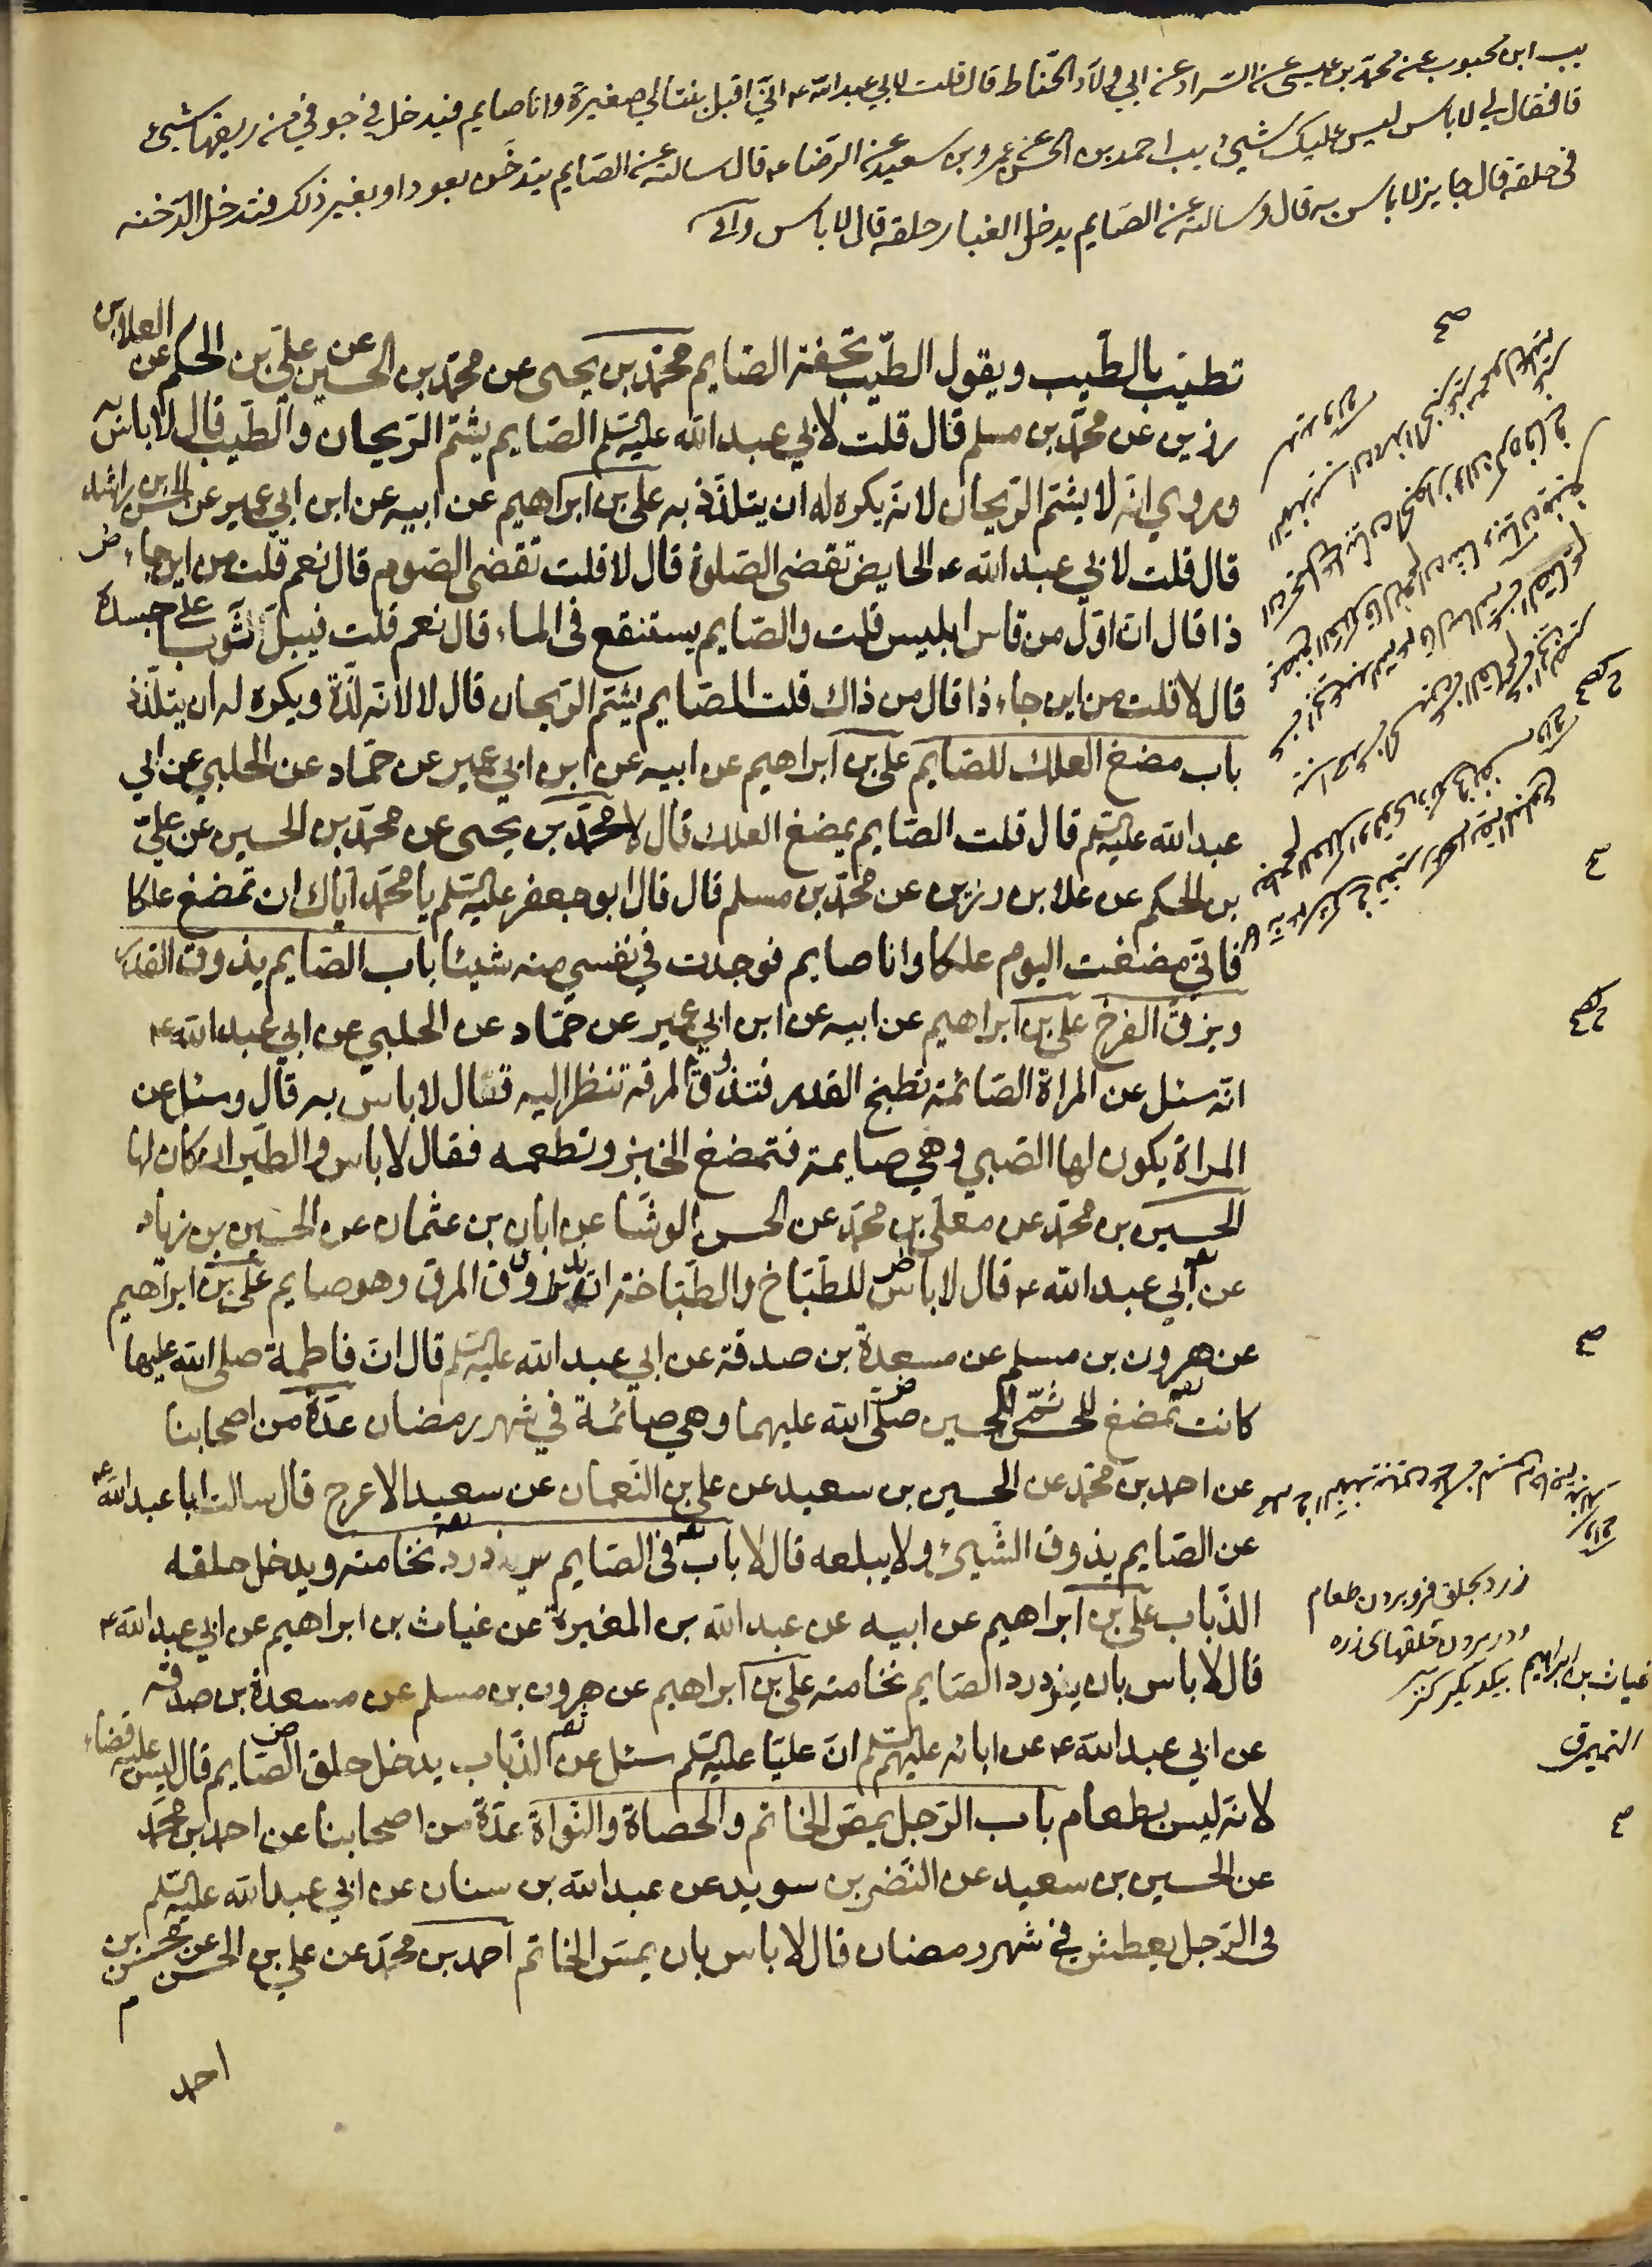 يب ابن محبوب عن محمد بن عيسى عن السراد عن ابي ولاد الحناط قال قلت لابي عبد الله ع اني اقبل بنتا لي صغيرة وانا صايم فيدخل في جوفي من ريقها شيئ
قا فقال لي لا باس ليس عليك شيئ يب احمد بن الحسن عن عمرو بن سعيد عن الرضا ع قال سالته عن الصايم يتدخن بعود او بغير ذلك فتدخل الدخنه
في حلقه قال جايز لا باس به قال وسالته عن الصايم يدخل الغبار حلقه قال لا باس
تطيّب بالطّيب ويقول الطّيب تحفة الصّايم محمّد بن يحيى عن محمّد بن الحسين عن عليّ بن الحكم عن العلا بن
رزين عن محمّد بن مسلم قال قلت لابي عبد الله عليه السلم الصّايم يشتم الرّيحان والطّيب قال لا باس به
وروي انّه لا يشتم الرّيحان لانّه يكره له ان يتلذّذ به علي بن ابراهيم عن ابيه عن ابن ابي عمير عن الحسن بن راشد
قال قلت لابي عبد الله ع الحايض تقضى الصّلوة قال لا قلت تقضى الصّوم قال نعم قلت من اين جاء
ذا قال انّ اوّل من قاس ابليس قلت والصّايم يستنقع في الماء قال نعم قلت فيبلّ ثوبا على جسده
قال لا قلت من اين جاء ذا قال من ذاك قلت الصّايم يشتم الرّيحان قال لا لانّه لذّة ويكره له ان يتلذّذ
باب مضغ العلك للصّايم علي بن ابراهيم عن ابيه عن ابن ابي عمير عن حمّاد عن الحلبي عن ابي
عبد الله عليه السلم قال قلت الصّايم يمضغ العلك قال لا محمّد بن يحيى عن محمّد بن الحسين عن عليّ
بن الحكم عن علا بن رزين عن محمّد بن مسلم قال قال ابو جعفر عليه السلم يا محمّد ايّاك ان تمضغ علكا
فانّي مضغت اليوم علكا وانا صايم فوجدت في نفسي منه شيئا باب الصّايم يذوق القدر
ويزق الفرخ علي بن ابراهيم عن ابيه عن ابن ابي عمير عن حمّاد عن الحلبي عن ابي عبد الله ع
انّه سئل عن المراة الصّائمة تطبخ القدر فتذوق المرقة تنظر اليه فقال لا باس به قال وسئل عن
المراة يكون لها الصّبي وهي صايمة فتمضغ الخبز وتطعمه فقال لا باس والطّير ان كان لها
الحسين بن محمّد عن معلّى بن محمّد عن الحسن الوشّا عن ابان بن عثمان عن الحسين بن زياد
عن ابي عبد الله ع قال لا باس للطّبّاخ والطّبّاخة ان يذوق المرق وهو صايم علي بن ابراهيم
عن هرون بن مسلم عن مسعدة بن صدقة عن ابي عبد الله عليه السلم قال انّ فاطمة صلى الله عليها
كانت تمضغ للحسن ثمّ للحسين صلّى الله عليهما وهي صائمة في شهر رمضان عدّة من اصحابنا
عن احمد بن محمّد عن الحسين بن سعيد عن علي بن النّعمان عن سعيد الاعرج قال سالت ابا عبد الله ع
عن الصّايم يذوق الشّيئ ولا يبلعه قال لا باب في الصّايم يزدرد نخامته ويدخل حلقه
الذّباب علي بن ابراهيم عن ابيه عن عبد الله بن المغيرة عن غياث بن ابراهيم عن ابي عبد الله ع
قال لا باس بان يزدرد الصّايم نخامته علي بن ابراهيم عن هرون بن مسلم عن مسعدة بن صدقة
عن ابي عبد الله ع عن ابائه عليهم السلم انّ عليّا عليه السلم سئل عن الذّباب يدخل حلق الصّايم قال ليس عليه قضاء
لانّه ليس بطعام باب الرّجل يمصّ الخاتم والحصاة والنّواة عدّة من اصحابنا عن احمد بن محمّد
عن الحسين بن سعيد عن النّضر بن سويد عن عبد الله بن سنان عن ابي عبد الله عليه السلم
في الرّجل يعطش في شهر رمضان قال لا باس بان يمصّ الخاتم احمد بن محمّد عن علي بن الحسن عن محسن بن
احمد
زرد بحلق فرو بردن طعام
ودر بردن حلقهاى زره
غياث بن ابراهيم